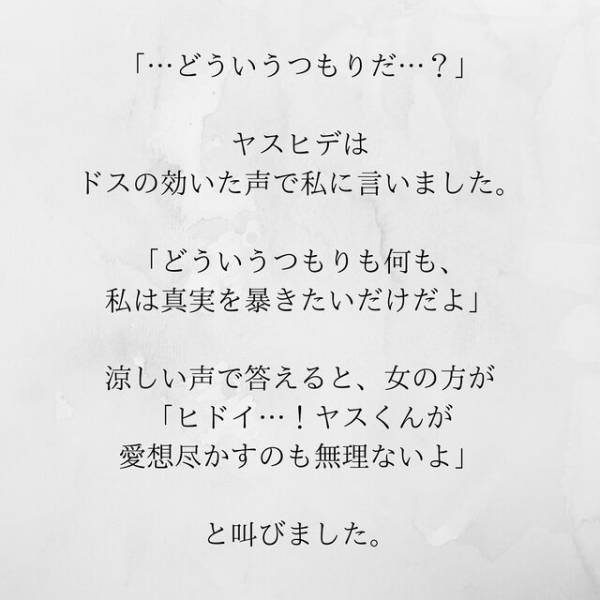 「…どういうつもりだ…？」
ヤスヒデは
ドスの効いた声で私に言いました。
「どういうつもりも何も、
私は真実を暴きたいだけだよ」
涼しい声で答えると、女の方が
「ヒドイ…！ヤスくんが
愛想尽かすのも無理ないよ」
と叫びました。